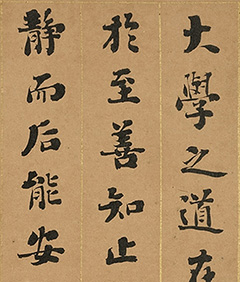 大學之道在
於至善知止
靜而后能安